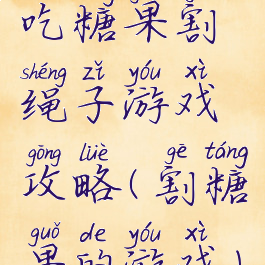 吃糖果割
shéng zǐ yóu xì
绳子游戏
gōng lüè gē táng
攻略(割糖
guǒ de yóu xì
果的游戏)